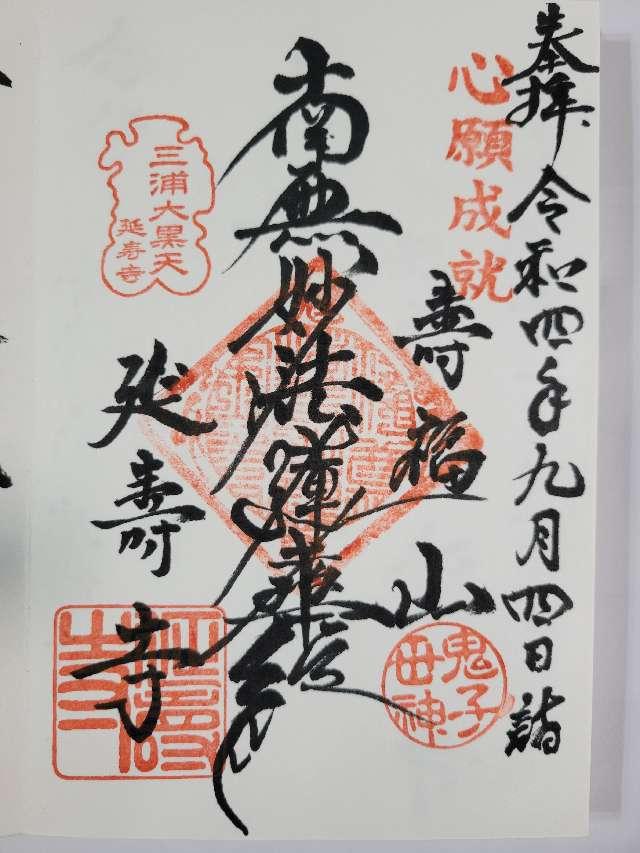 奉拝 令和四年九月四日 詣
心願成就
壽福山
鬼子
母神
南無妙法蓮華経
三浦大黒天
延寿寺
延壽寺